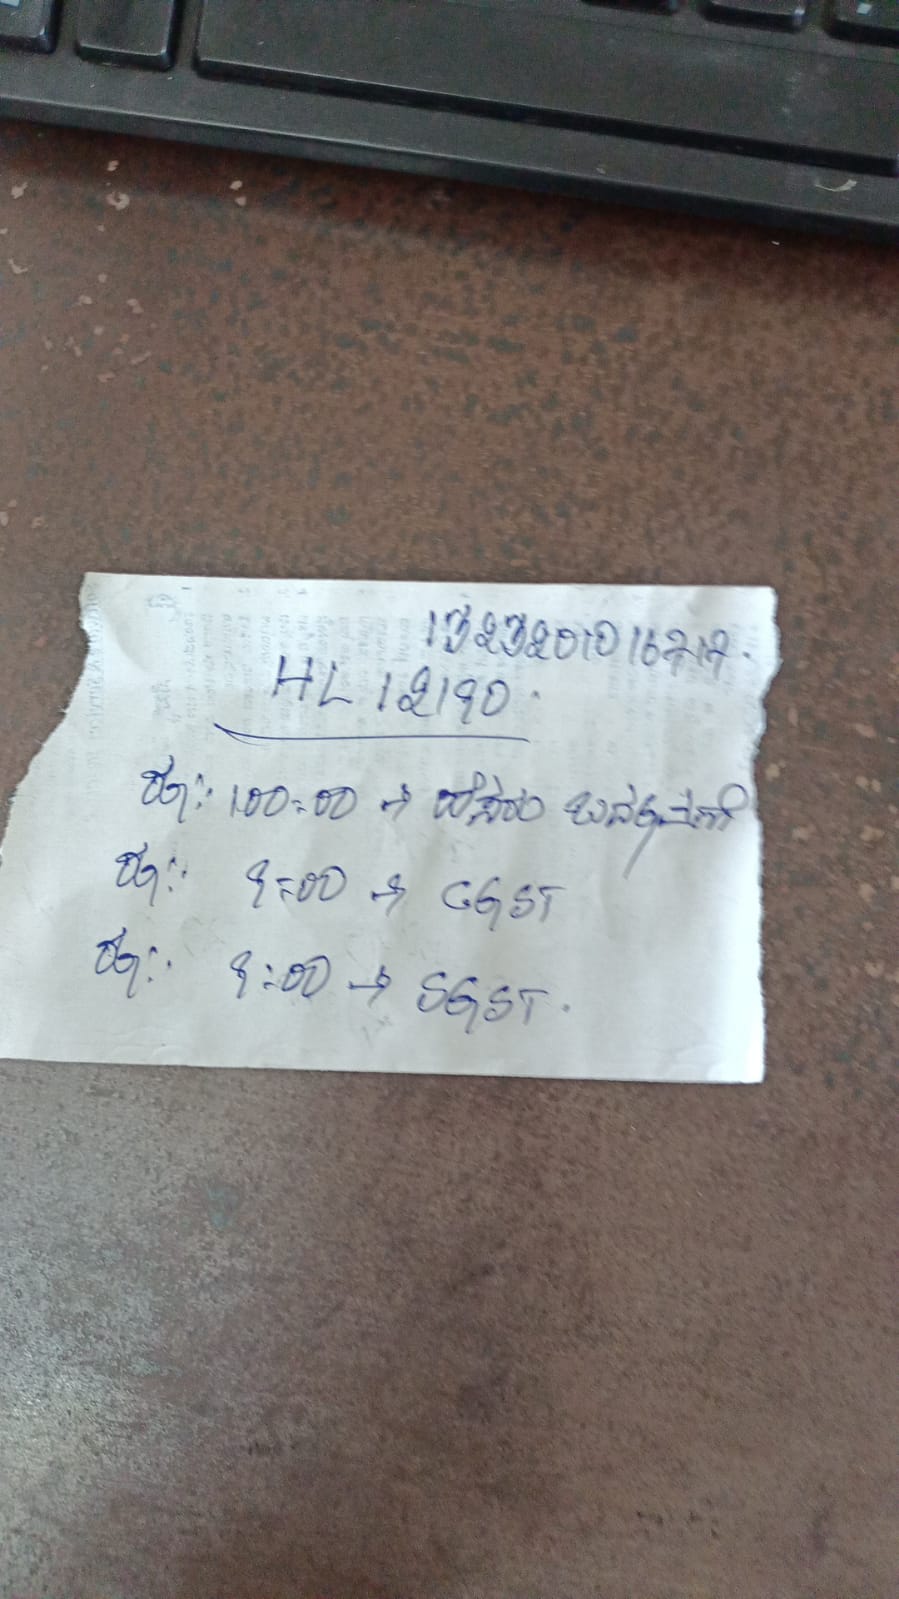 1323201016717.
HL 12190.
ರೂ: 100=00 →
ರೂ: 9=00 → CGST
ರೂ: 9=00 → SGST.